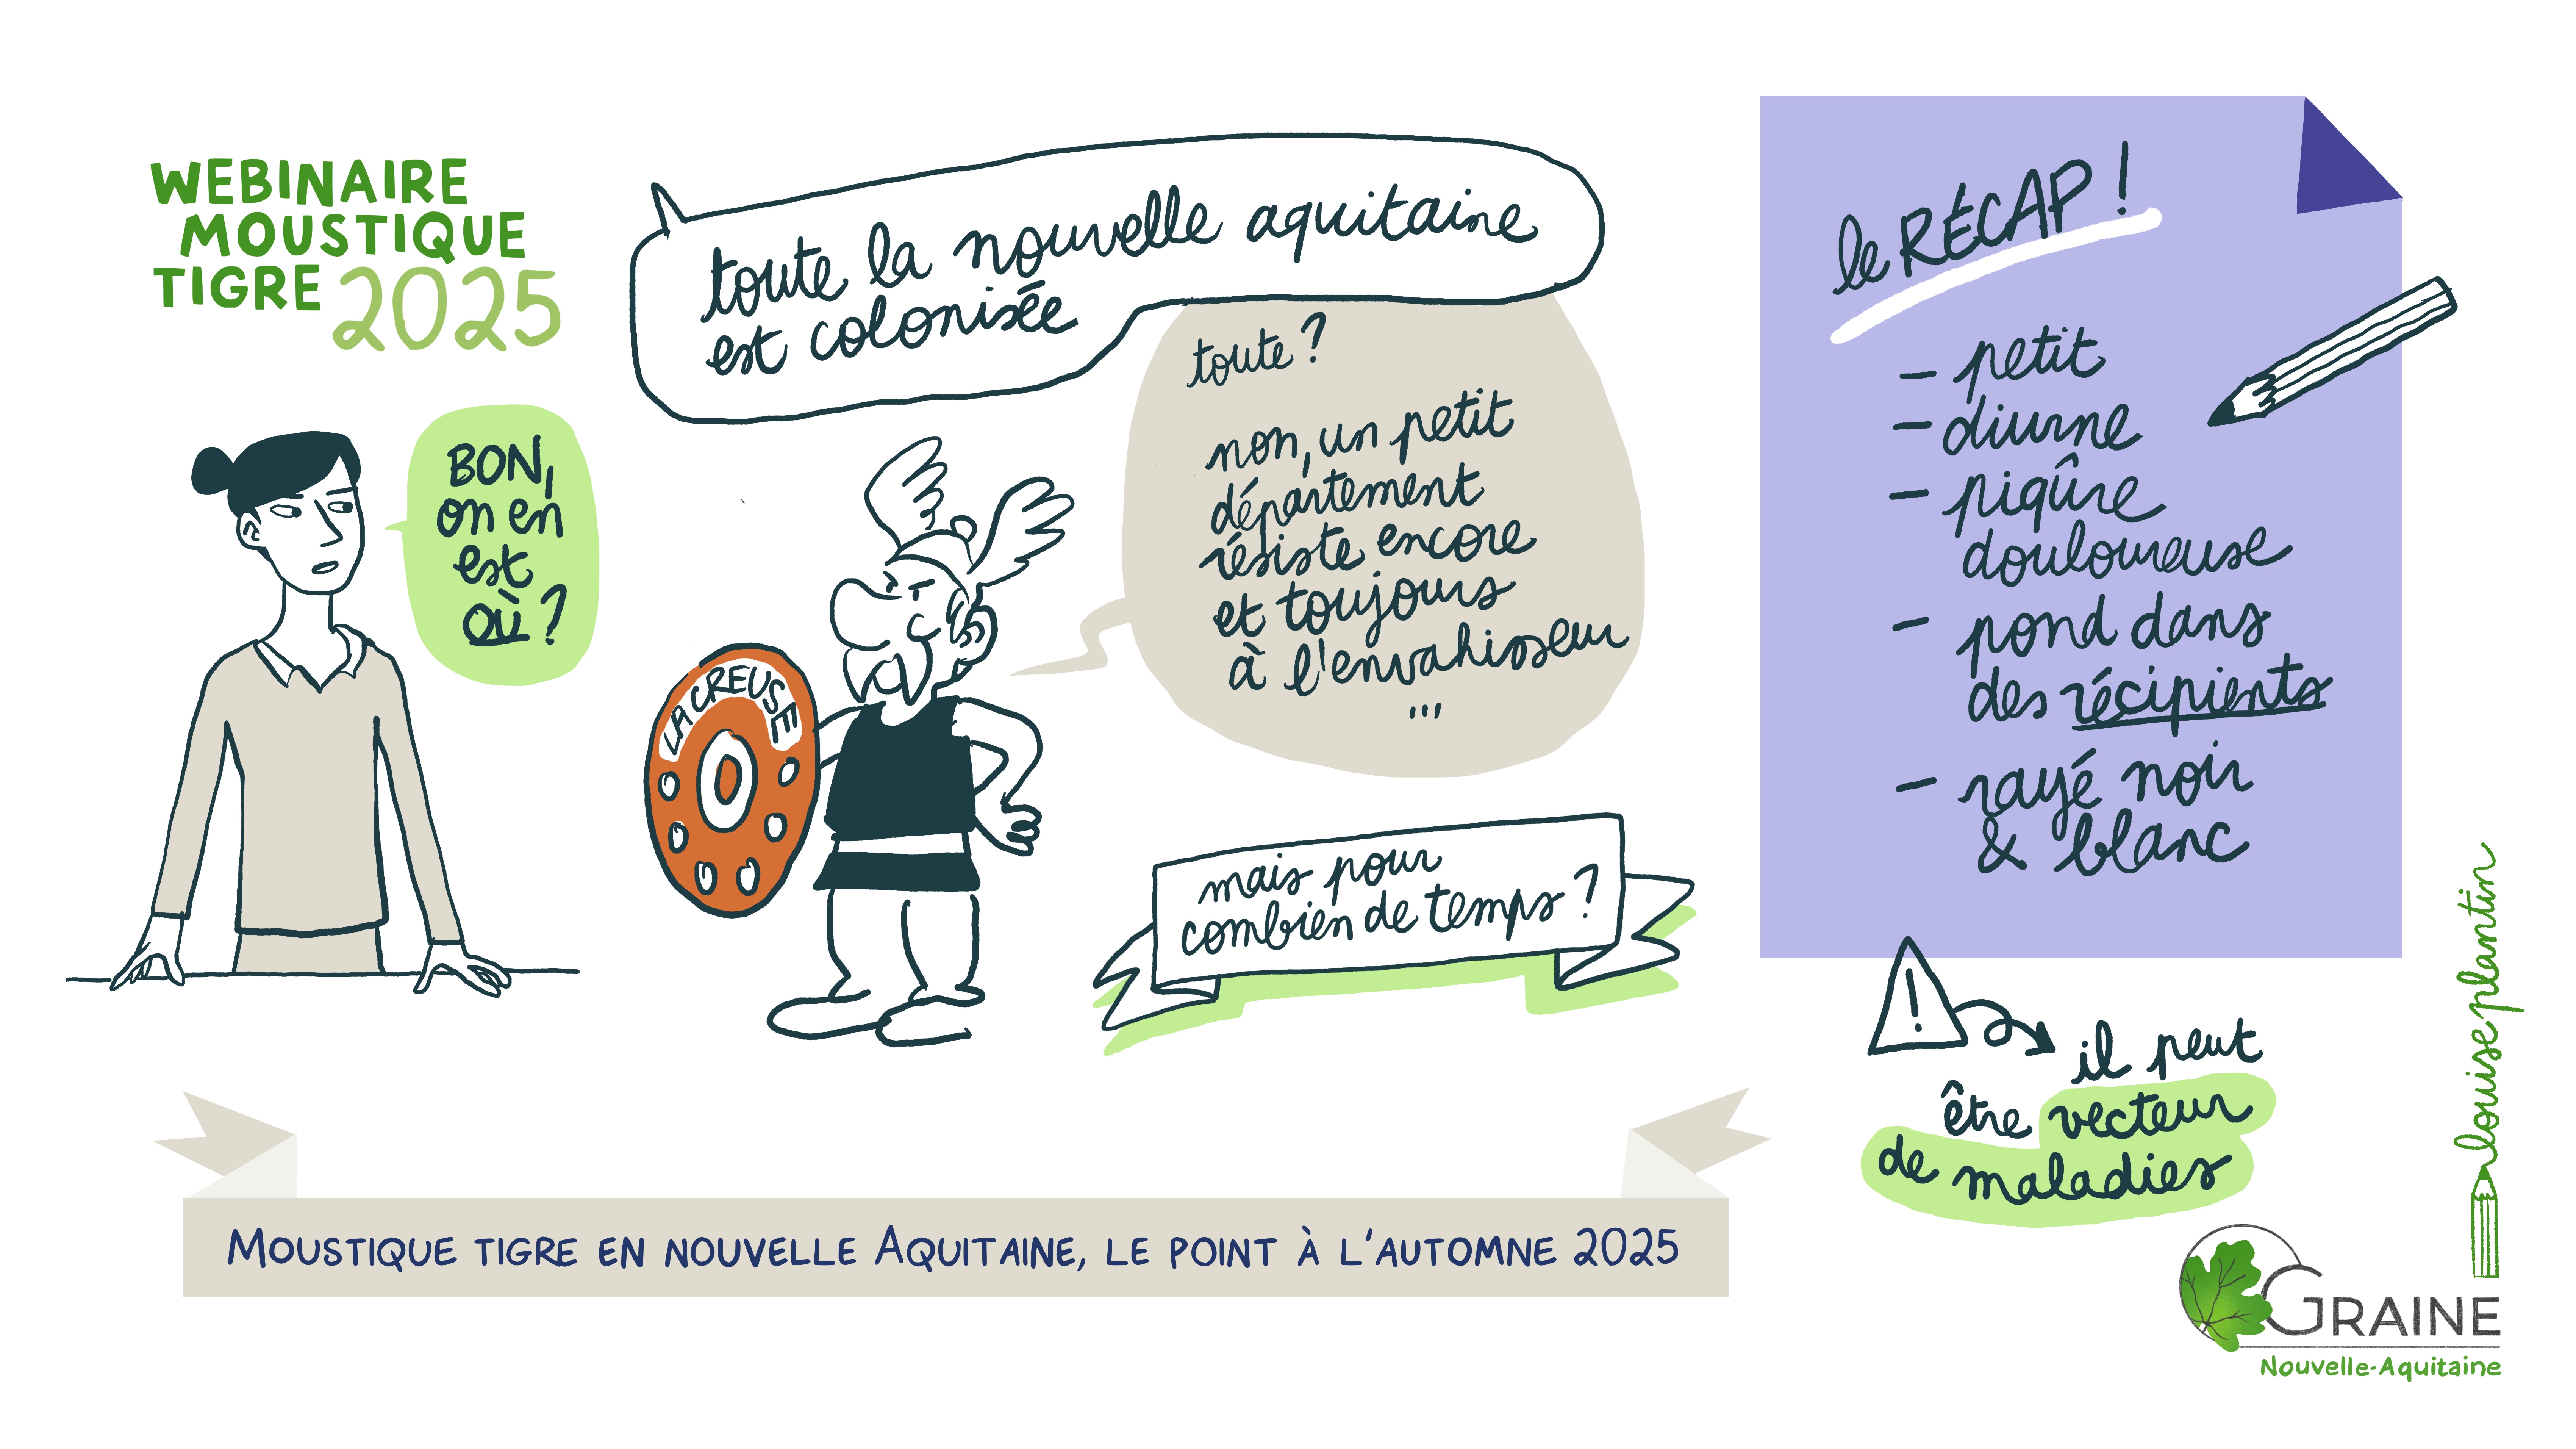 WEBINAIRE
MOUSTIQUE
TIGRE 2025
BON,
on en
est
OÙ ?
toute la nouvelle aquitaine
est colonisée
toute ?
non, un petit
département
résiste encore
et toujours
à l'envahisseur
...
LA CREUSE
mais pour
combien de temps ?
le RÉCAP !
- petit
- diurne
- piqûre
douloureuse
- pond dans
des récipients
- rayé noir
& blanc
!
il peut
être vecteur
de maladies
MOUSTIQUE TIGRE EN NOUVELLE AQUITAINE, LE POINT À L'AUTOMNE 2025
louise plantin
GRAINE
Nouvelle-Aquitaine